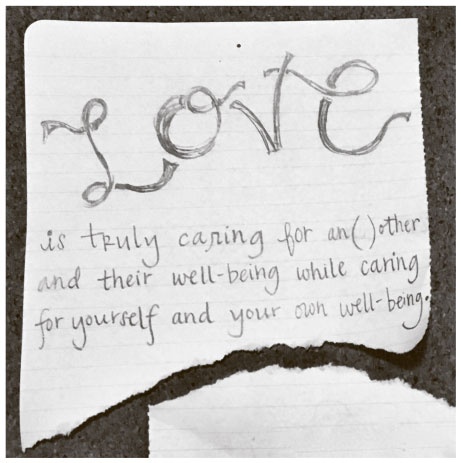 LOVE
is truly caring for an( )other
and their well-being while caring
for yourself and your own well-being.